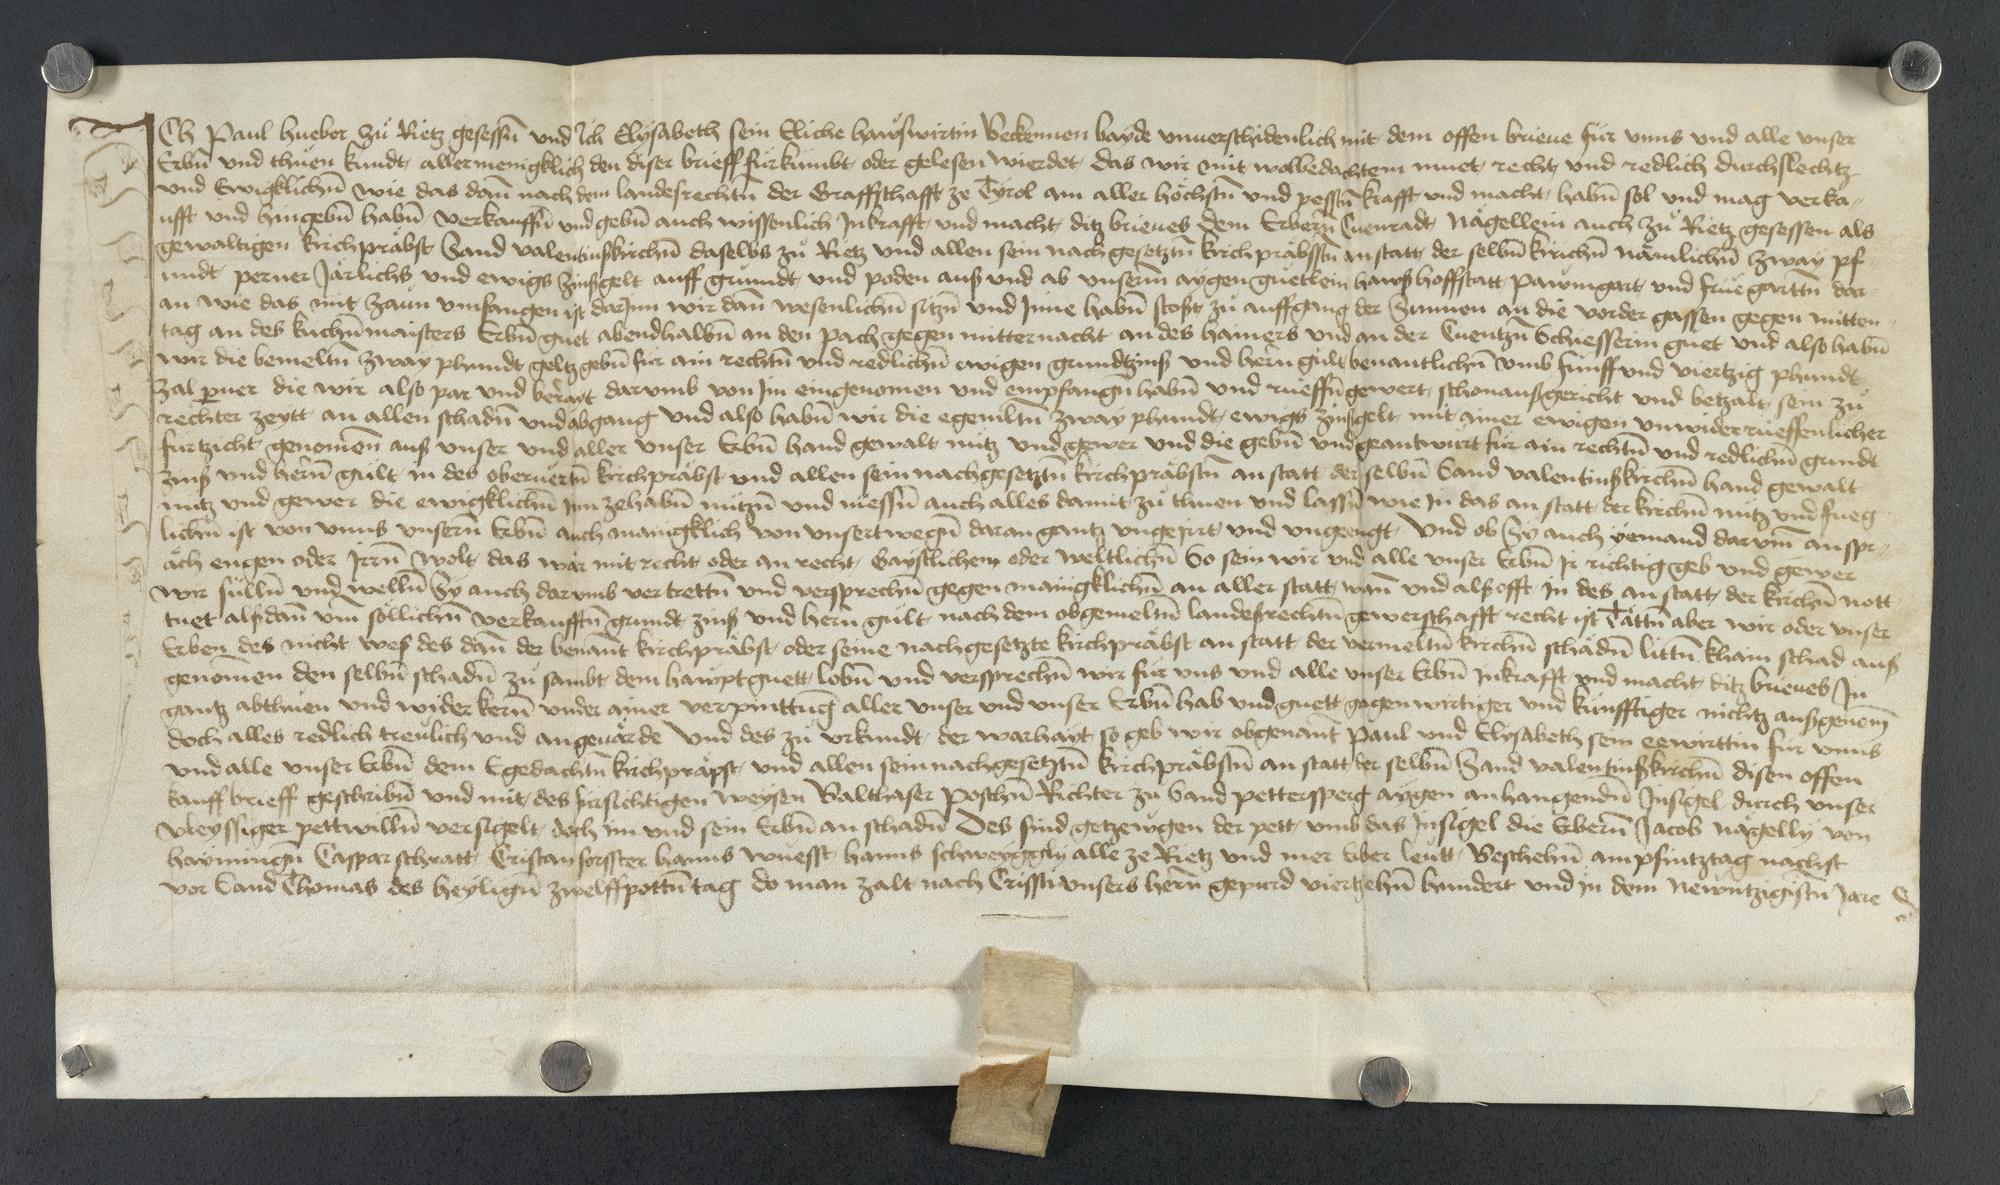 Ich Paul hueber zů Rietz gesessn̄ und Ich Elysabeth sein Eliche hawßwirtin Bekennen bayde unuerschidenlich mit dem offen brieue für unns und alle unser
Erbn̄ und thuen kundt allermenigklich den diser brieff fürkumbt oder gelesen wierdet das wir mit wolbedachtem muet recht und redlich durchslechtz
und Ewigklichn̄ wie das dann̄ nach dem landesrechtn̄ der Graffschafft ze Tyrol am aller höchstn̄ und pesstn̄ krafft und macht habn̄ sol und mag verka-
ufft und hingebn̄ habn̄ verkauffn̄ und gebn̄ auch wissenlich Inkrafft und macht ditz brieues dem Erbern̄ Cuenradt Nägellein auch zů Rietz gesessen als
gewaltigen kirchpräbst Sand valentinßkirchn̄ daselbs zů Rietz und allen sein nachgesetztn̄ kirchpräbsstn̄ anstatt der selbn̄ kirchn̄ nämlichn̄ zway pf
undt perner Järlichs und ewigs zinßgelt auff grundt und poden auß und ab unserm aygen guetlein hawß hoffstatt pawmgart und frue garttn̄ dar
an wie das mit zaün umfangen ist darInn wir dan̄ wesenlichn̄ sitzn̄ und Inne habn̄ stosst zů auffgang der Sunnen an die vorder gassen gegen mitten
tag an des kuchn̄maisters Erbn̄ guet abendhalbn̄ an den pach gegen mitternacht an des hainers und an der Cuentzn̄ Schiesserin guet und also habn̄
wir die bemeltn̄ zway phundt geltz gebn̄ für ain rechtn̄ und redlichn̄ ewigen grundtzinß und hern̄ gült benantlichn̄ umb fünff und viertzig phundt
zal perner die wir also par und berayt darumb von Im eingenomen und empfangn̄ habn̄ und rueffn̄ gewert schonaußgericht und betzalt sein zů
rechter zeytt an allen schadn̄ und abgang und also habn̄ wir die egemeltn̄ zway phundt ewigs zinßgelt mit ainer ewigen unwiderrueffenlicher
fürtzicht genomen̄ auß unser und aller unser Erbn̄ hand gewalt nütz und gewer und die gebn̄ und geantwurt für ain rechtn̄ und redlichn̄ grundt
zinß und hern̄ gült in des oberüertn̄ kirchpräbst und allen sein nachgesetztn̄ kirchpräbstn̄ anstatt der selbn̄ Sand valentinßkirchn̄ hand gewalt
nütz und gewer die ewigklichn̄ Inn zehabn̄ nützn̄ und niessn̄ auch alles damit zů thuen und lassn̄ wie In das an statt der kirchn̄ nütz und fueg
lichn̄ ist von unns unsern̄ Erbn̄ auch manigklich von unsertwegn̄ daran gantz ungeJrrt und ungeengt Und ob Sy auch yemand darum̄ anspr-
äch engen oder Irrn̄ wolt das wär mit recht oder an recht Gaystlichem oder weltlichn̄ So sein wir und alle unser Erbn̄ Ir richtig geb und gewer
wir sülln̄ und welln̄ Sy auch darumb vertrettn̄ und versprechn̄ gegen manigklichn̄ an aller statt wan̄ und alß offt In des an statt der kirchn̄ nott
tuet alßdan̄ um̄ söllichn̄ verkaufftn̄ grundt zinß und hern̄ gült nach dem obgemeltn̄ landeßrechtn̄ gewerschafft recht ist Tättn̄ aber wir oder unser
Erben des nicht weß des dan̄ der benant kirchpräbst oder seine nachgesetzte kirchpräbst an statt der vermeltn̄ kirchn̄ schadn̄ littn̄ kham schad auß
genomen den selbn̄ schadn̄ zů sambt dem hawptguett lobn̄ und versprechn̄ wir für uns und alle unser Erbn̄ Inkrafft und macht ditz brieues In
gantz abthuen und widerkern̄ under ainer verpinttung aller unser und unser Erbn̄ hab und guett gegenwirtiger und künfftiger nichtz außgenem̄
doch alles redlich treülich und angeuärde Und des zů urkundt der warhayt so geb wir obgenant Paul und Elysabeth sein eewirttin für unns
und alle unser Erbn̄ dem Egedachtn̄ kirchpräpst und allen sein nachgesetztn̄ kirchpräbstn̄ an statt der selbn̄ Sand valentinßkirchn̄ disen offen
kauff brieff geschribn̄ und mit des fürsichtigen weysen Balthaser Poschn̄ Richter zů Sand pettersperg aygen anhangendn̄ Insigel durch unser
vleyssiger pettwilln̄ versigelt doch im und sein Erbn̄ an schadn̄ Des sind getzewgen der pett umb das Insigel die Erbern̄ Jacob nägelly von
haymingn̄ Caspar schratt Cristan forsster hanns wuesst hanns alle ze Rietz und mer Erber leütt Beschehn̄ am pfintztag nachst
vor Sand Thomas des heylign̄ zwelffpottn̄ tag do man zalt nach Cristi unsers hern̄ gepurd viertzehn̄ hundert und in dem Newntzigistn̄ Jare